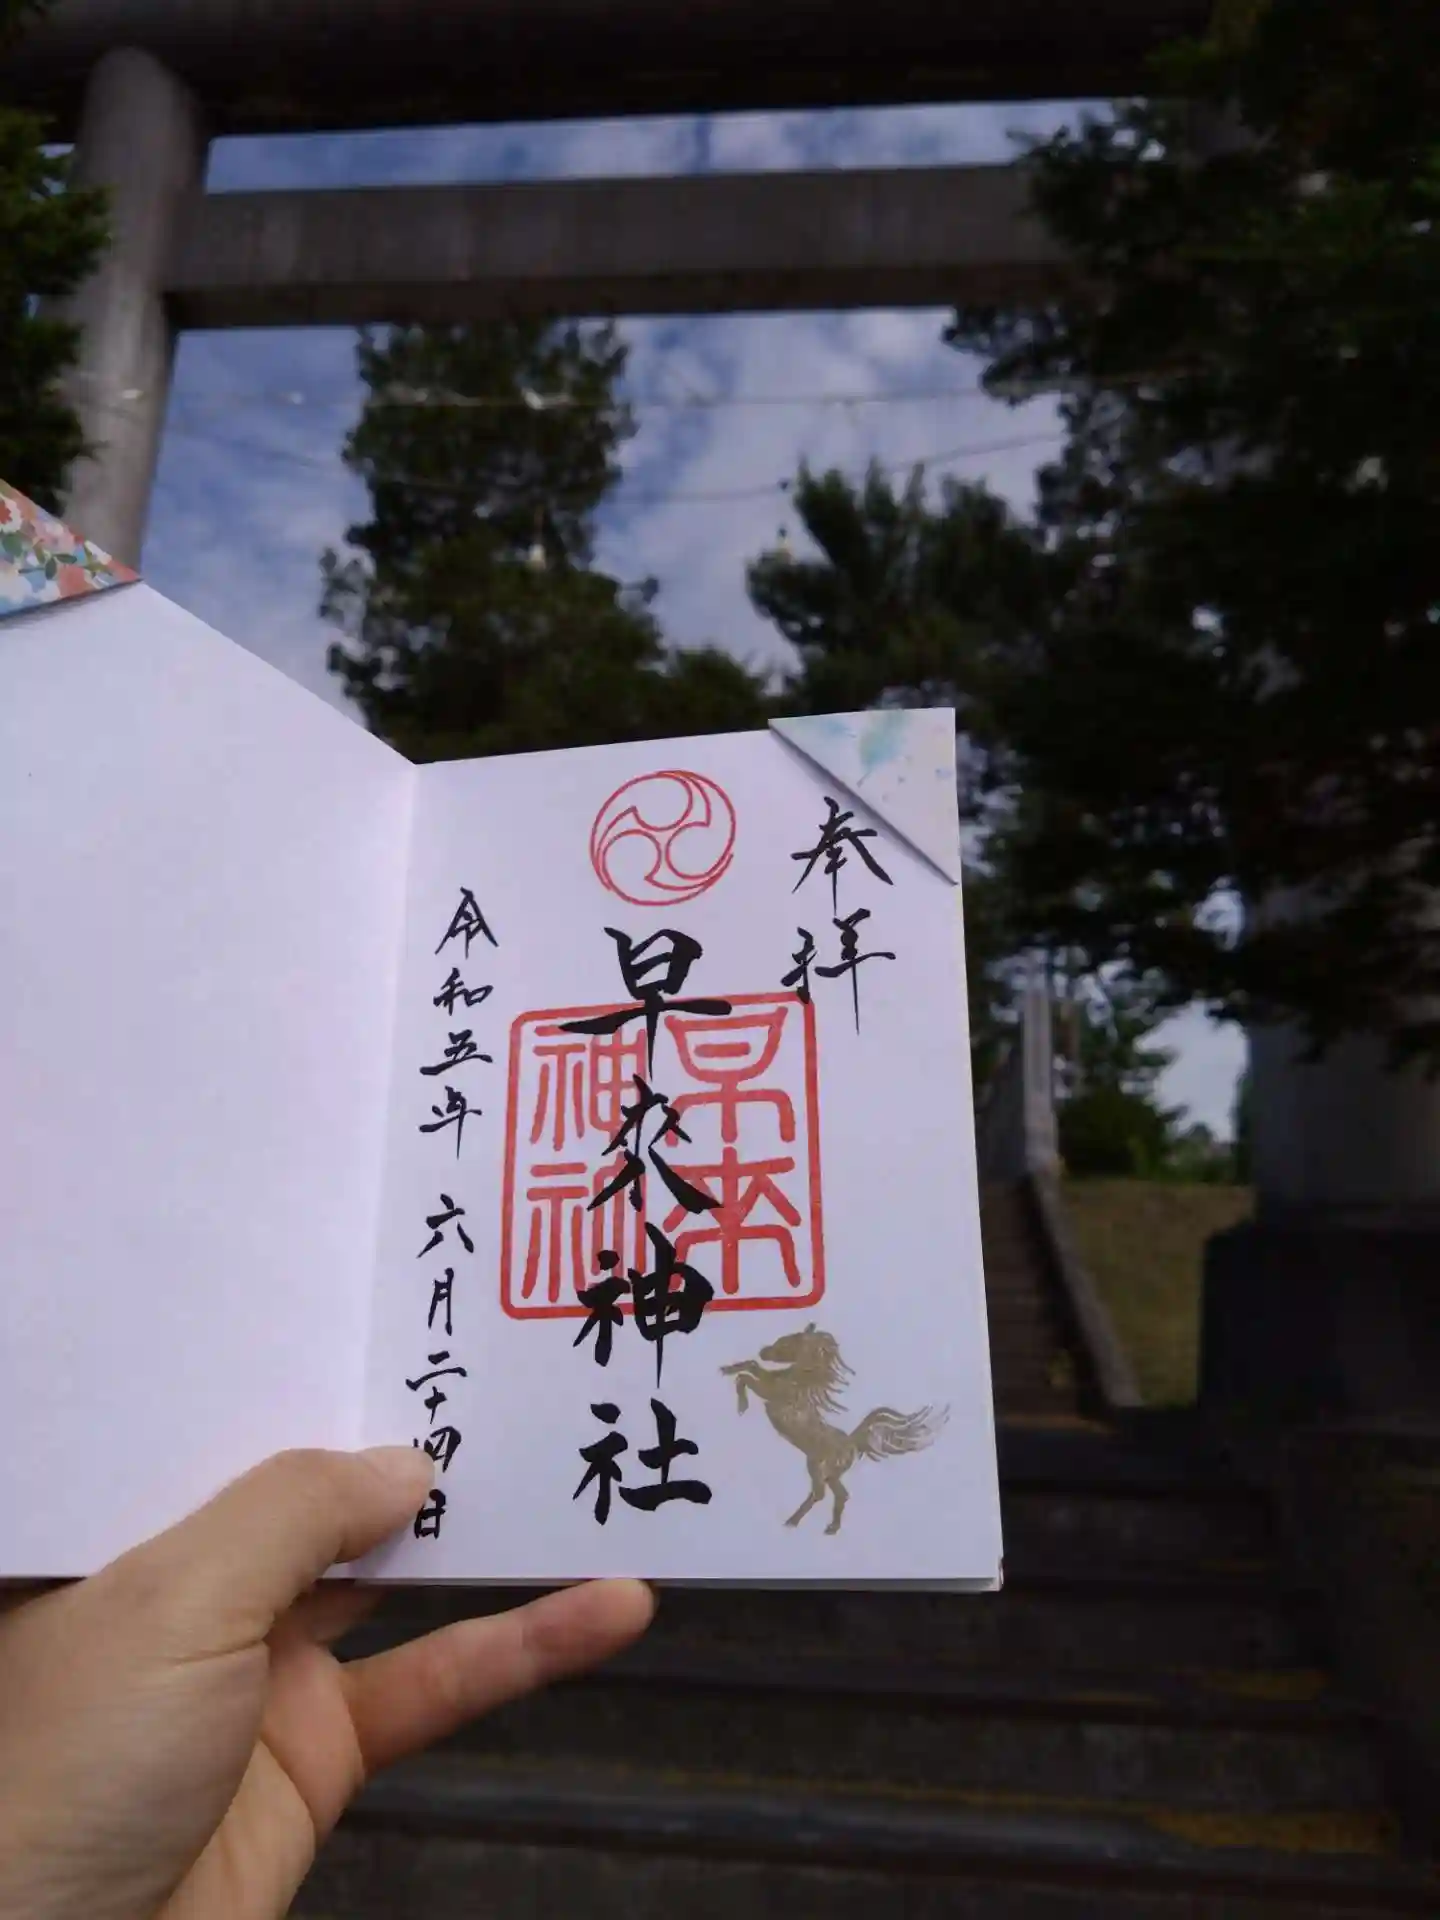 奉拝
早来神社
早来神社
令和五年 六月二十四日